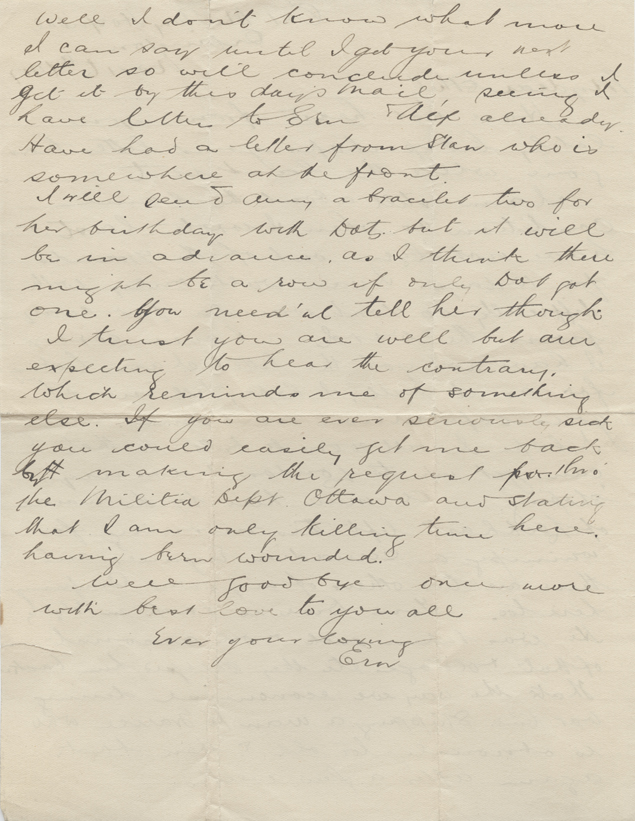 Well I don't know what more
I can say until I get your next
letter so will conclude unless I
get it by this days mail, seeing I
have letter to Ern Alex already.
Have had a letter from Stan who is
somewhere at the front.
I will send a bracelet two for
her birthday with Dots but it will
be in advance. as I think there
might be a row if only Dot got
one. You need'nt tell her though.
I trust you are well but am
expecting to hear the contrary.
Which reminds me of something
else. If you are ever seriously sick
you could easily get me back
making the request thro
the Militia Dept. Ottawa and stating
that I am only killing time here.
having been wounded.
Well good bye once more
with best love to you all
Ever your loving
Ern